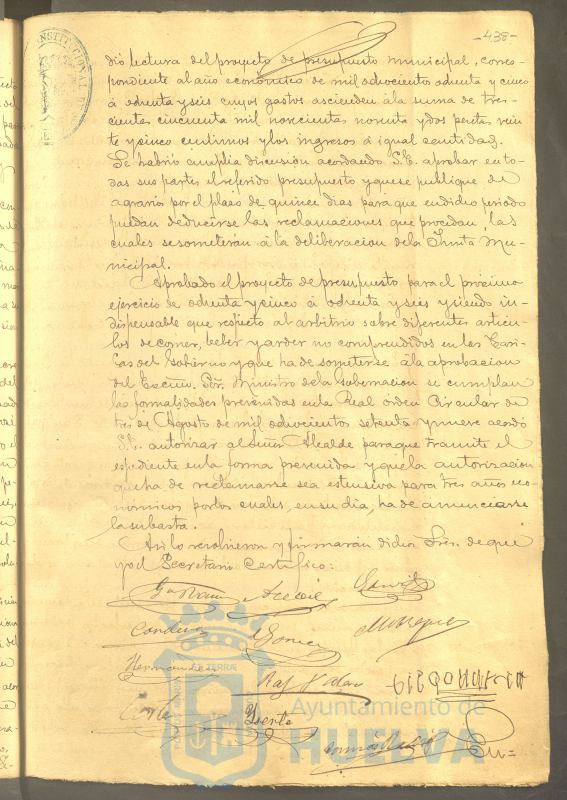 -438-
dió lectura del proyecto de presupuesto municipal, corres-
pondiente al año económico de mil ochocientos ochenta y cinco
á ochenta y seis cuyos gastos ascienden á la suma de tres-
cientas cincuenta mil novecientas noventa y dos pesetas vein
te y cinco centimos y los ingresos á igual cantidad.
Se habrió amplia discusion acordando S.E. aprobar en to-
das sus partes el referido presupuesto y que se publique de
agravio por el plazo de quince dias para que en dicho periodo
puedan deducirse las reclamaciones que procedan, las
cuales se someterán á la deliberacion de la Junta Mu-
nicipal.
Aprobado el proyecto de presupuesto para el próximo
ejercicio de ochenta y cinco á ochenta y seis y siendo in-
dispensable que respecto al arbitrio sobre diferentes articu-
los de comer, beber y arder no comprendidos en las Tari-
fas del Gobierno y que ha de someterse á la aprobacion
del Excmo. Sr. Ministro de la Gobernacion se cumplan
las formalidades prevenidas en la Real orden Circular de
tres de Agosto de mil ochocientos setenta y nueve acordó
S.E. autorizar al Señor Alcalde para que tramite el
espediente en la forma prevenida y que la autorizacion
que ha de reclamarse sea estensiva para tres años eco-
nómicos por los cuales, en su dia, ha de anunciarse
la subasta.
Asi lo resolvieron y firmarán dichos Sres. de que
yo el Secretario Certifico:
Garcia
Hernandez
Ayuntamiento de
HUELVA
En=